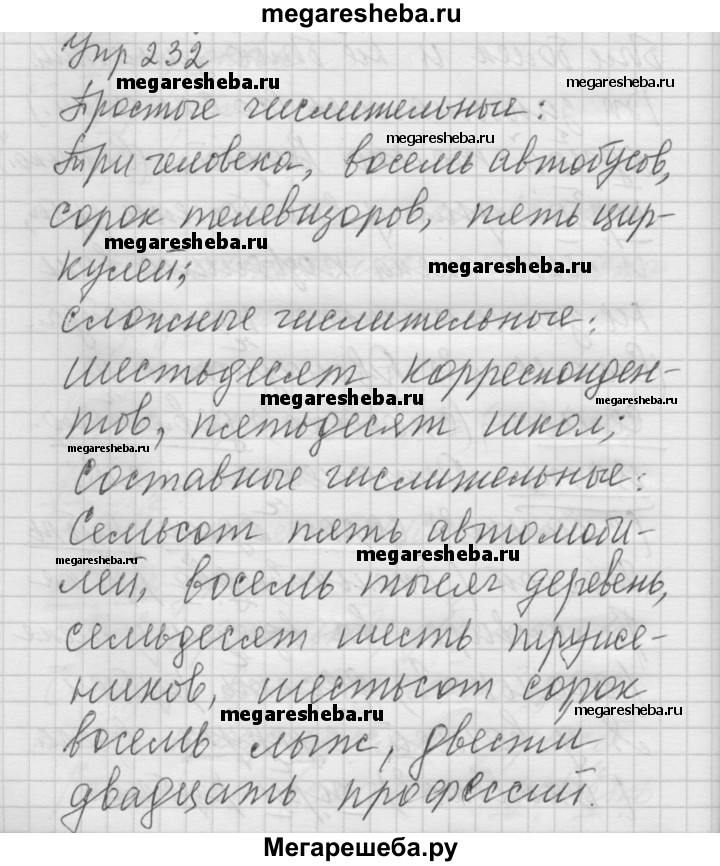 megaresheba.ru
Упр 232
megaresheba.ru
megaresheba.ru
Простые числительные:
megaresheba.ru
Три человека, восемь автобусов,
сорок телевизоров, пять цир-
megaresheba.ru
кулей;
megaresheba.ru
сложные числительные:
шестьдесят корреспонден-
megaresheba.ru
megaresheba.ru
тов, пятьдесят школ;
megaresheba.ru
Составные числительные:
Семьсот пять автомоби-
megaresheba.ru
megaresheba.ru
лей, восемь тысяч деревень,
семьдесят шесть труже-
ников, шестьсот сорок
megaresheba.ru
megaresheba.ru
восемь лыж, двести
двадцать профессий.
Мегарешеба.ру